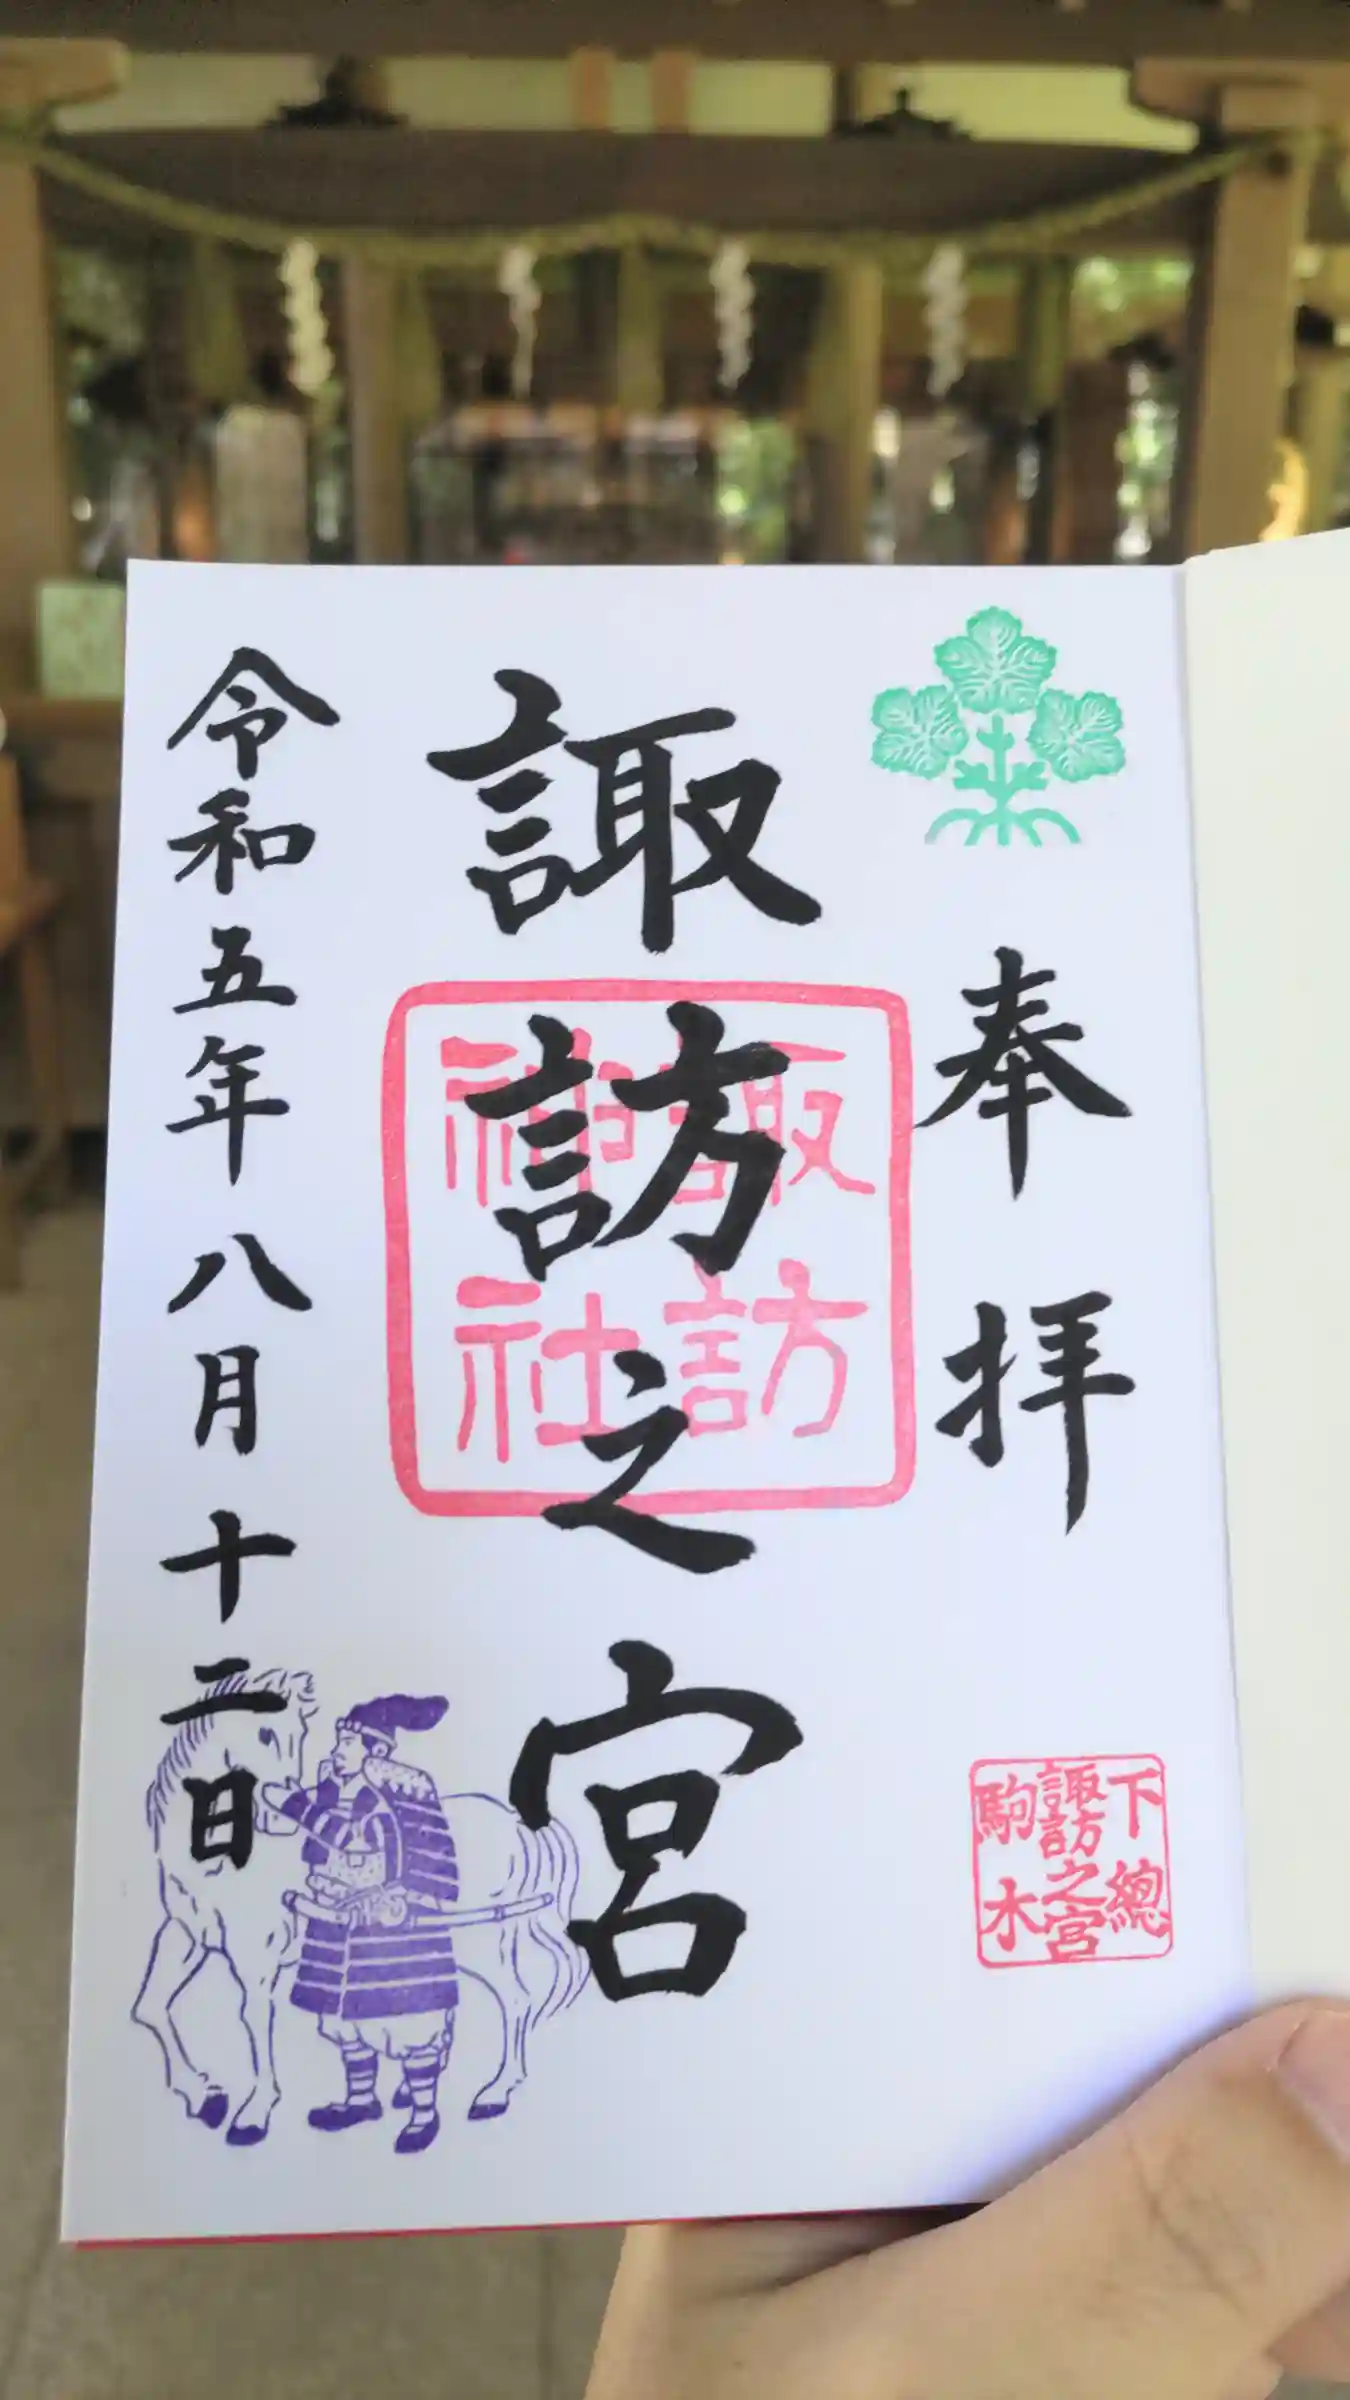 奉拝
下總
諏訪之宮
駒木
諏訪之宮
諏訪
神社
令和五年八月十二日